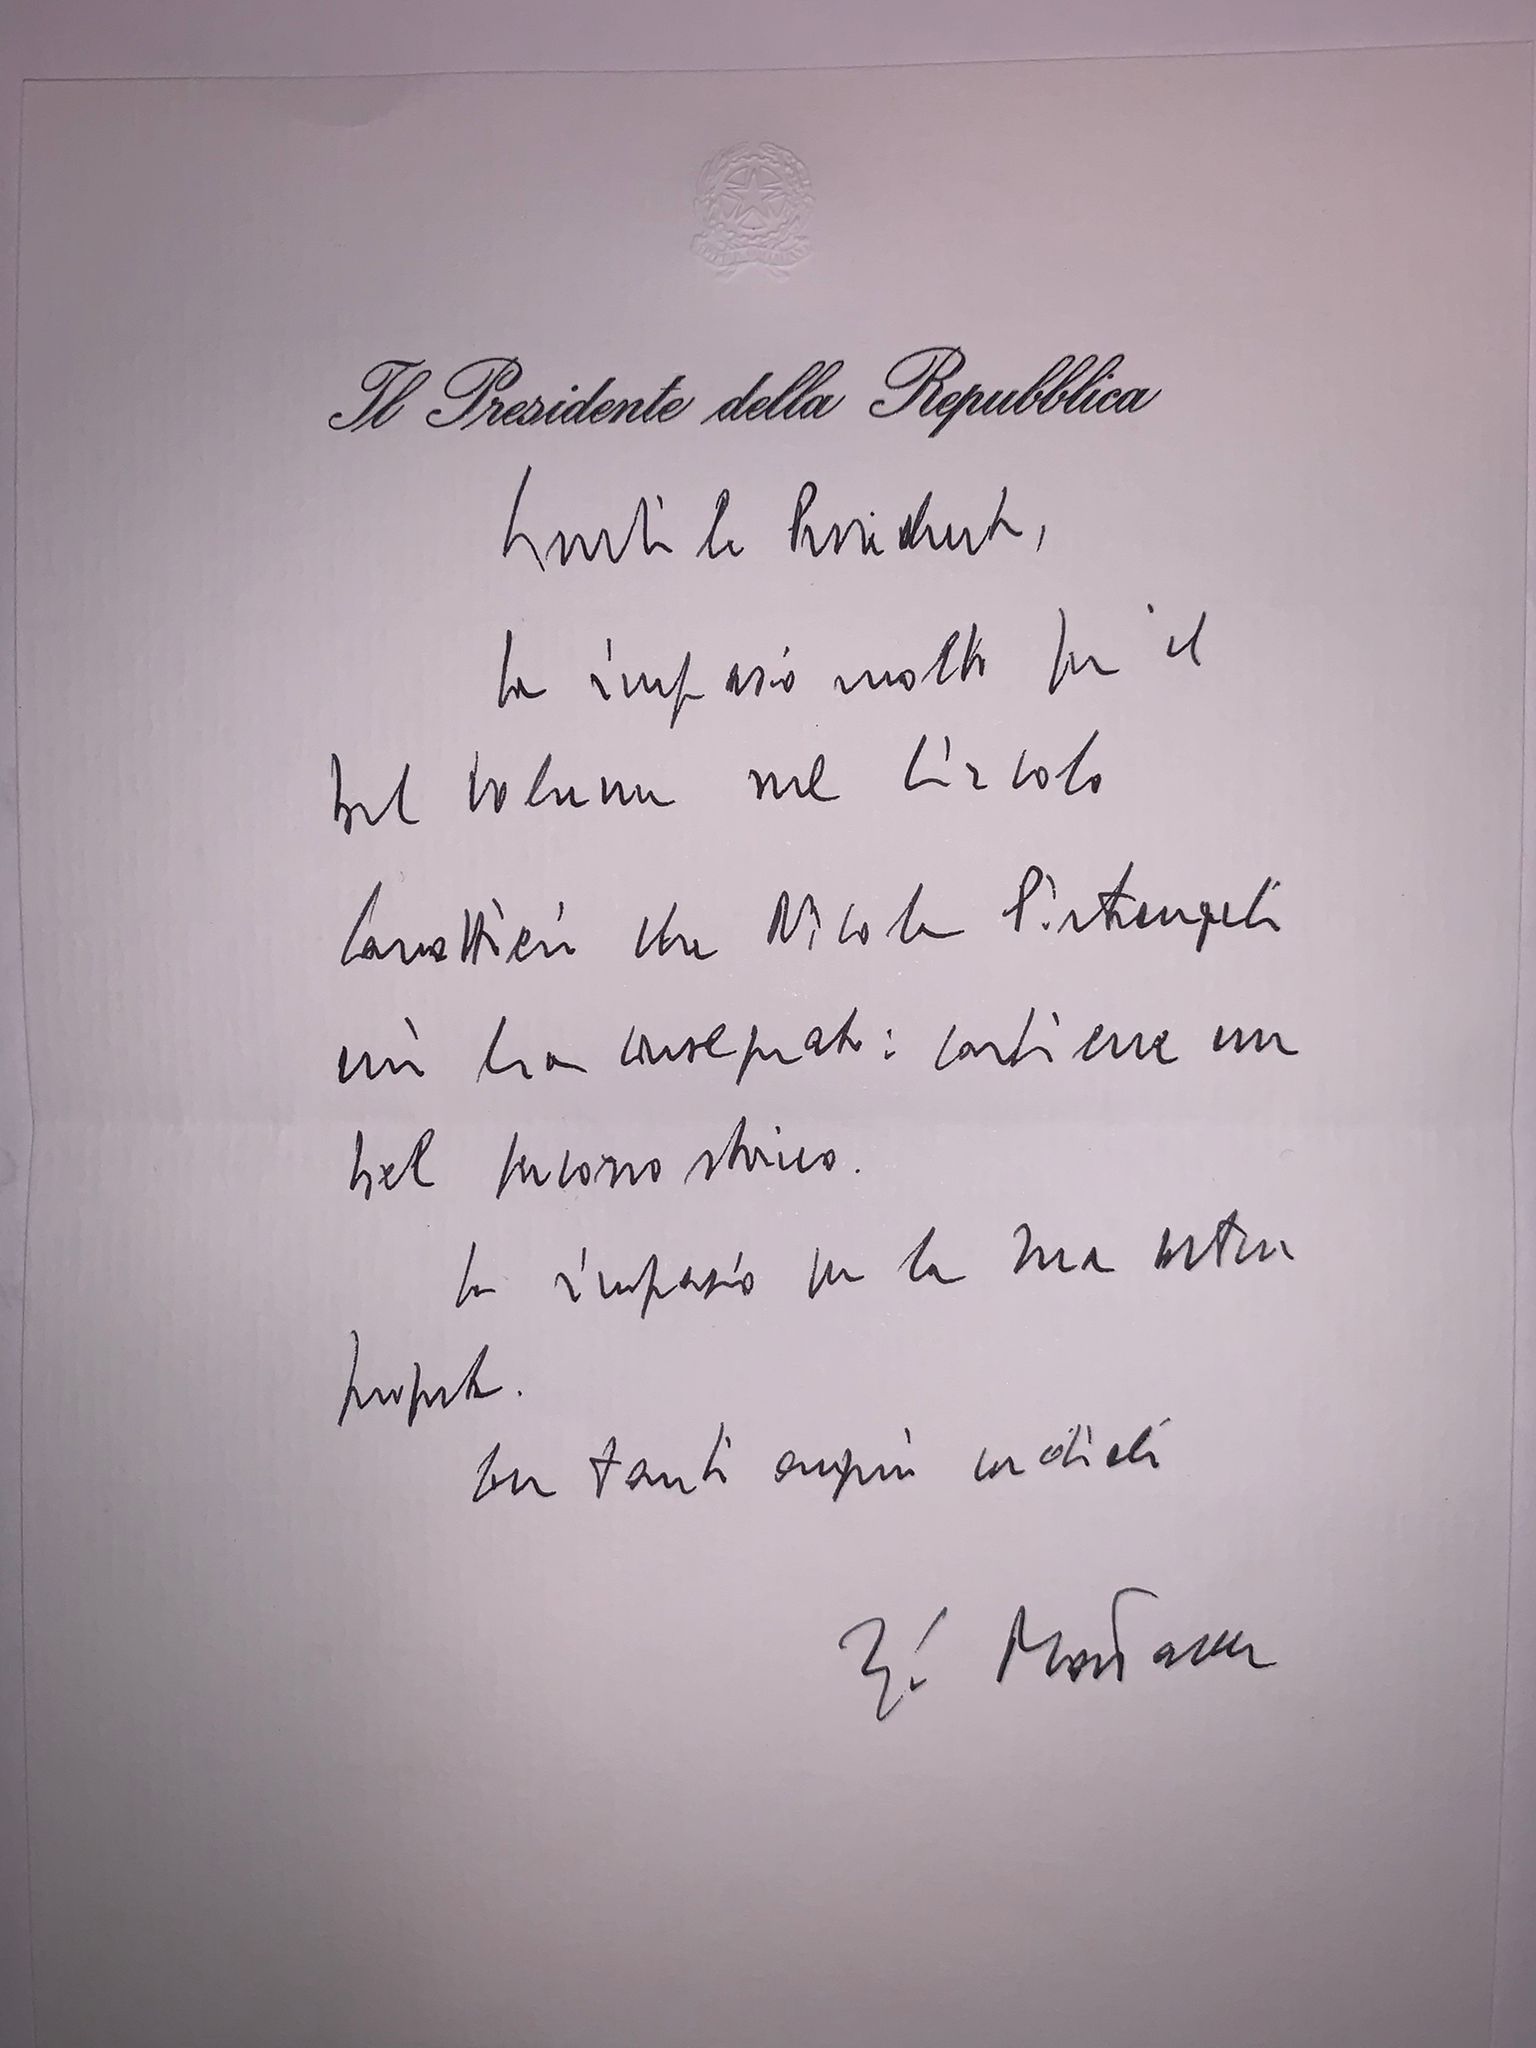 Il Presidente della Repubblica
Gentile Presidente,
La ringrazio molto per il
bel volume sul Circolo
Canottieri che Nicola Pietrangeli
mi ha consegnato: contiene un
bel percorso storico.
La ringrazio per la Sua cortese
proposta.
Con tanti auguri cordiali
Mattarella